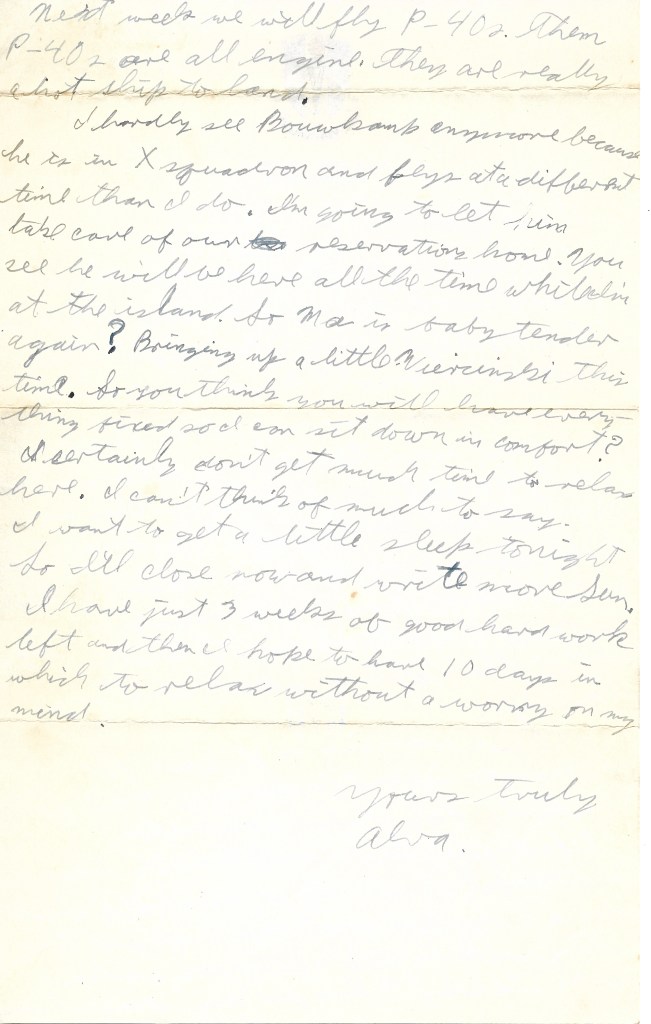 Next week we will fly P-40s. Them
P-40s are all engine. They are really
a hot ship to land.
I hardly see Bouwkamp anymore because
he is in X squadron and flys at a different
time than I do. I'm going to let him
take care of our reservations home. You
see he will be here all the time while I'm
at the island. So Ma is baby tender
again? Bringing up a little Viercinski this
time. So you think you will have every-
thing fixed so I can sit down in comfort?
I certainly don't get much time to relax
here. I can't think of much to say.
I want to get a little sleep tonight
so I'll close now and write more Sun.
I have just 3 weeks of good hard work
left and then I hope to have 10 days in
which to relax without a worry on my
mind.
Yours truly
Alva.